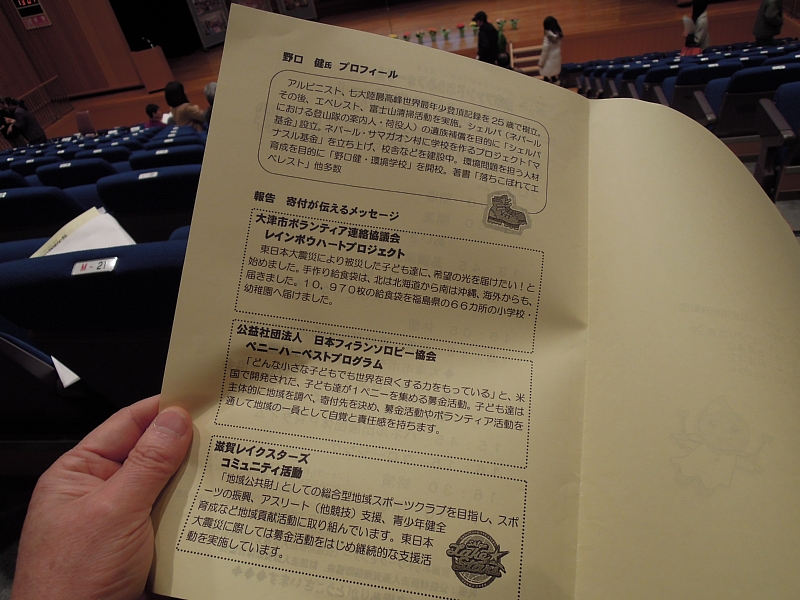 野口 健氏 プロフィール
アルピニスト、七大陸最高峰世界最年少登頂記録を25歳で樹立。
その後、エベレスト、富士山清掃活動を実施。シェルパ(ネパール
における登山隊の案内人・荷役人)の遺族補償を目的に「シェルパ
基金」設立。ネパール・サマガオン村に学校を作るプロジェクト「マ
ナスル基金」を立ち上げ、校舎などを建設中。環境問題を担う人材
育成を目的に「野口健・環境学校」を開校。著書「落ちこぼれてエ
ベレスト」他多数
報告 寄付が伝えるメッセージ
大津市ボランティア連絡協議会
レインボウハートプロジェクト
東日本大震災により被災した子ども達に、希望の光を届けたい!と
始めました。手作り給食袋は、北は北海道から南は沖縄、海外からも、
届きました。10,970枚の給食袋を福島県の66カ所の小学校・
幼稚園へ届けました。
公益社団法人 日本フィランソロピー協会
ペニーハーベストプログラム
「どんな小さな子どもでも世界を良くする力をもっている」と、米
国で開発された、子ども達が1ペニーを集める募金活動。子ども達は
主体的に地域を調べ、寄付先を決め、募金活動やボランティア活動を
通して地域の一員として自覚と責任感を持ちます。
滋賀レイクスターズ
コミュニティ活動
「地域公共財」としての総合型地域スポーツクラブを目指し、スポ
ーツの振興、アスリート(他競技)支援、青少年健全
育成など地域貢献活動に取り組んでいます。東日本
大震災に際しては募金活動をはじめ継続的な支援活
動を実施しています。
M-21